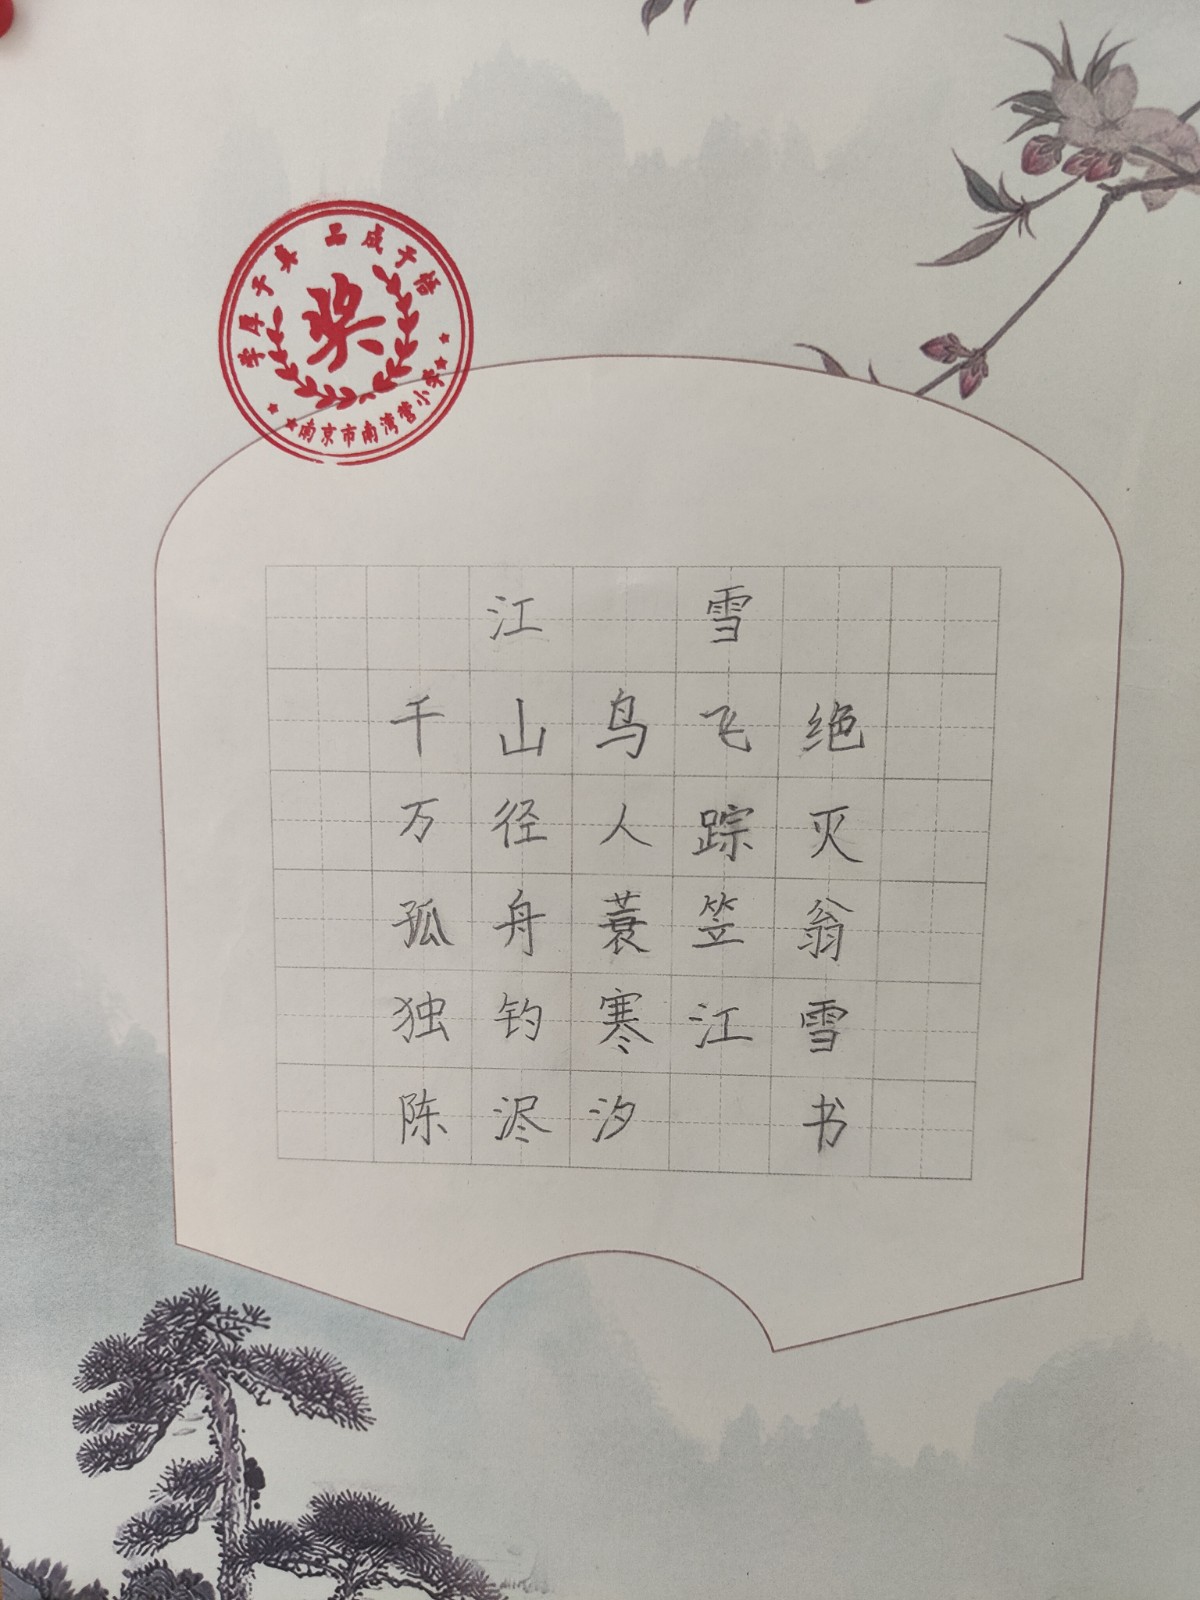 学厚于真 品成于悟
奖
南京市南湾营小学
江雪
千山鸟飞绝
万径人踪灭
孤舟蓑笠翁
独钓寒江雪
陈浕汐 书